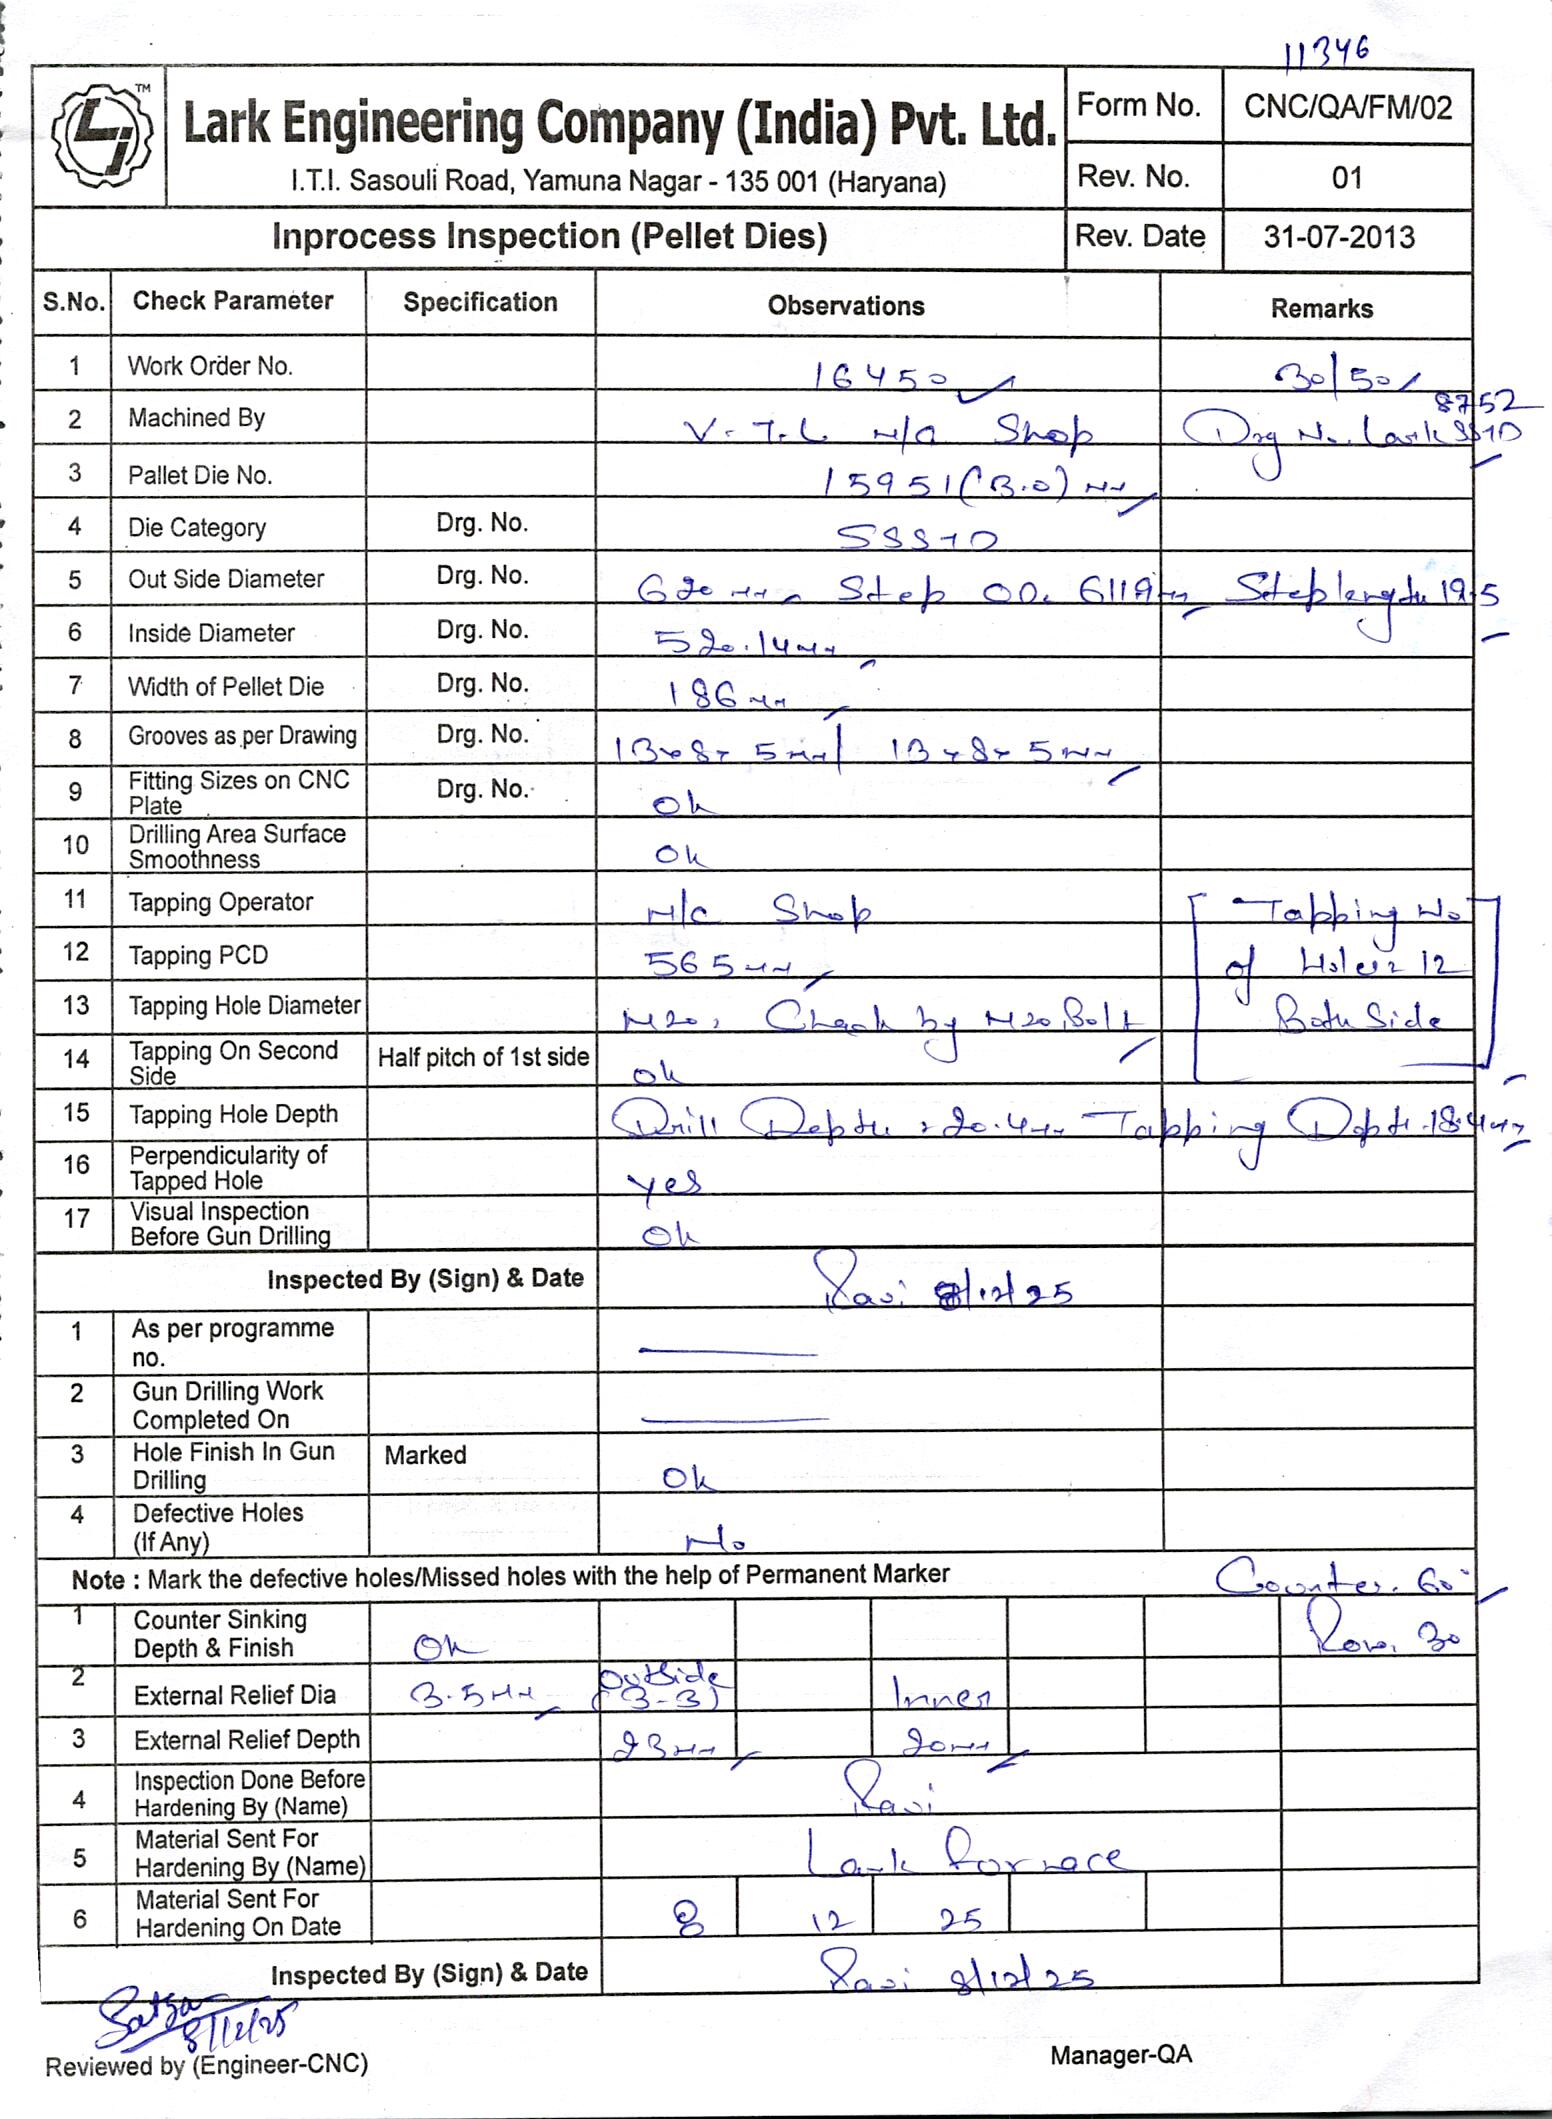 11346
TM
Lark Engineering Company (India) Pvt. Ltd.
I.T.I. Sasouli Road, Yamuna Nagar - 135 001 (Haryana)
Form No. CNC/QA/FM/02
Rev. No. 01
Inprocess Inspection (Pellet Dies) Rev. Date 31-07-2013
S.No. Check Parameter Specification Observations Remarks
1 Work Order No. 16450 30/50
2 Machined By V.T.L M/C Shop Drg No. Lark SS10
8752
3 Pallet Die No. 15951 (3.0) mm
4 Die Category Drg. No.
5 Out Side Diameter Drg. No. 620 mm Step OD. 611.9 mm Step length 19.5
6 Inside Diameter Drg. No. 520.14 mm
7 Width of Pellet Die Drg. No. 186 mm
8 Grooves as per Drawing Drg. No. 13x8x5mm/ 13x8x5mm
9 Fitting Sizes on CNC Plate Drg. No. Ok
10 Drilling Area Surface Smoothness Ok
11 Tapping Operator M/C Shop Tapping No
12 Tapping PCD 565mm of Holes 12
13 Tapping Hole Diameter M20, Check by M20 Bolt Both Side
14 Tapping On Second Side Half pitch of 1st side Ok
15 Tapping Hole Depth Drill Depth 20.4mm Tapping Depth 18.4mm
16 Perpendicularity of Tapped Hole yes
17 Visual Inspection Before Gun Drilling Ok
Inspected By (Sign) & Date Ravi 8/12/25
1 As per programme no.
2 Gun Drilling Work Completed On
3 Hole Finish In Gun Drilling Marked Ok
4 Defective Holes (If Any) No
Note : Mark the defective holes/Missed holes with the help of Permanent Marker Counter. 60°
1 Counter Sinking Depth & Finish Ok Row. 30
2 External Relief Dia 3.5mm Outside (3-3) Inner
3 External Relief Depth 23mm 20mm
4 Inspection Done Before Hardening By (Name) Ravi
5 Material Sent For Hardening By (Name) Lark Fornace
6 Material Sent For Hardening On Date 8 12 25
Inspected By (Sign) & Date Ravi 8/12/25
8/12/25
Reviewed by (Engineer-CNC) Manager-QA